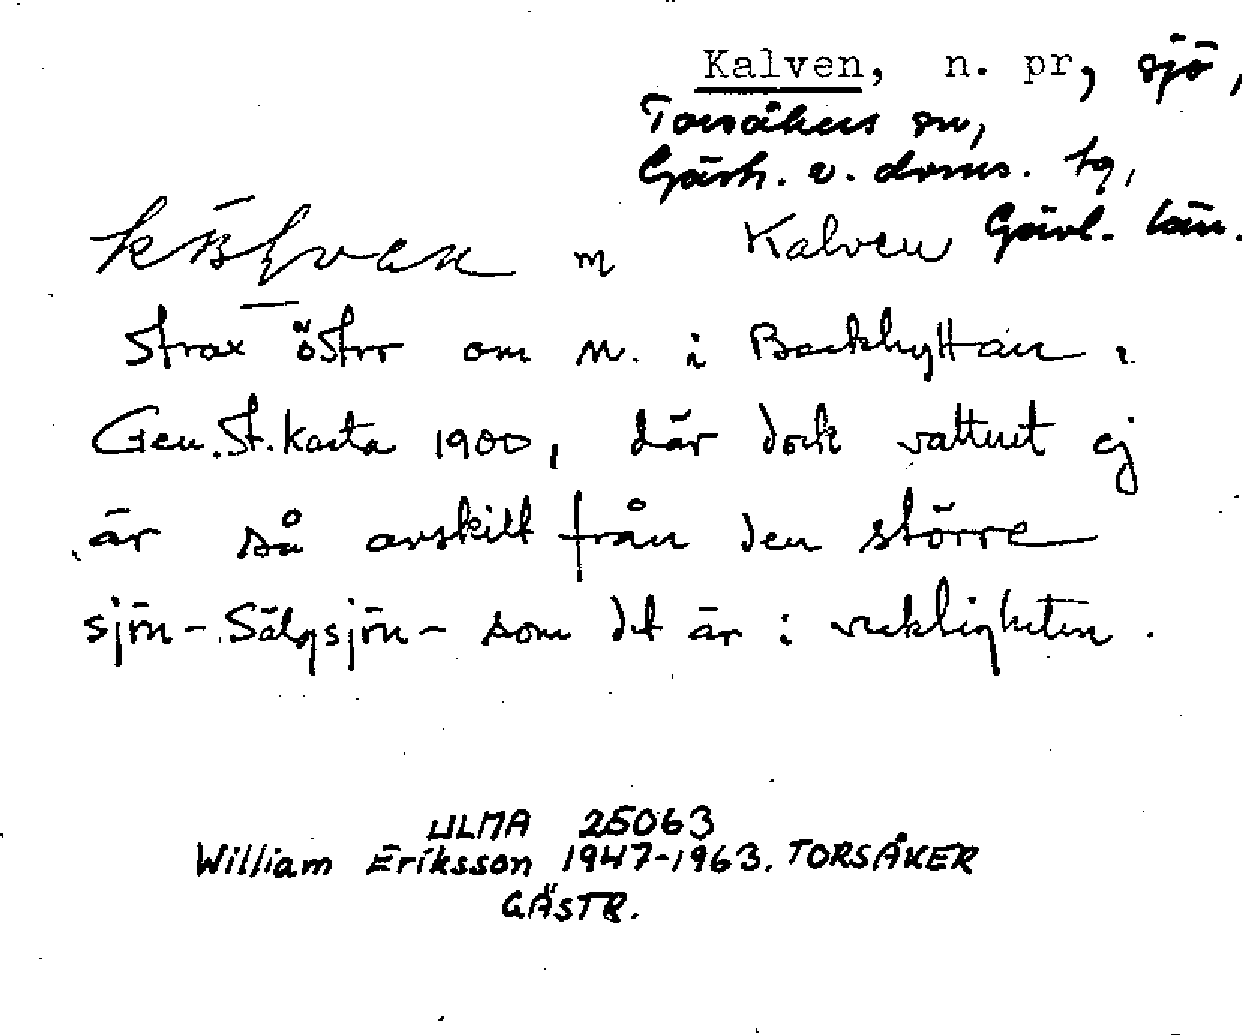 Kalven, n. pr, sjö,
Torsåkers sn,
Gästr. v. doms. tg,
Gävl. län.
m Kalven
strax öster om n. i Backhyttan i
Gen. St. karta 1900, där dock vattnet ej
är så avskilt från den större
sjön - Sälgsjön - som det är i verkligheten.
ULMA 25063
William Eriksson 1947-1963. TORSÅKER
GÄSTR.